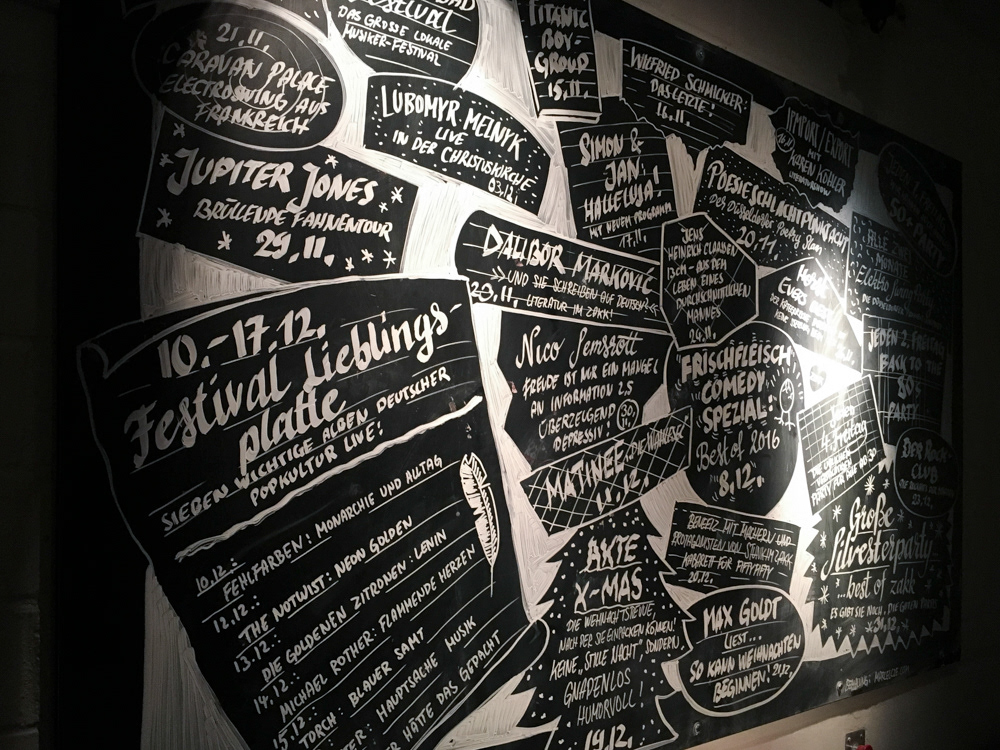 DAS GROSSE LOKALE
MUSIKER-FESTIVAL
21.11.
CARAVAN PALACE
ELECTROSWING AUS
FRANKREICH
TITANIC
BOY-
GROUP
15.11.
WILFRIED SCHMICKLER:
DAS LETZTE!
16.11.
LUBOMYR MELNYK
LIVE
IN DER CHRISTUSKIRCHE
03.12.
IMPORT/EXPORT
MIT
KAREN KÖHLER
JUPITER JONES
BRÜLLENDE FAHNENTOUR
29.11.
SIMON &
JAN:
HALLELUJA!
MIT NEUEM PROGRAMM
17.11.
POESIESCHLACHTPUNKTACHT
Der Düsseldorfer Poetry Slam
20.11.
50+ PARTY
ALLE
MONATE
DALIBOR MARKOVIĆ
UND SIE SCHREIBEN AUF DEUTSCH
20.11. LITERATUR IM ZAKK!
JENS
HEINRICH CLAASSEN
ICH - AUS DEM
LEBEN EINES
DURCHSCHNITTLICHEN
MANNES
24.11.
10.-17.12.
Festival Lieblings-
platte
SIEBEN WICHTIGE ALBEN DEUTSCHER
POPKULTUR LIVE!
10.12.:
FEHLFARBEN: MONARCHIE UND ALLTAG
12.12.:
THE NOTWIST: NEON GOLDEN
13.12.:
DIE GOLDENEN ZITRONEN: LENIN
14.12.:
MICHAEL ROTHER: FLAMMENDE HERZEN
15.12.
TORCH: BLAUER SAMT
HAUPTSACHE MUSIK
HÄTTE DAS GEDACHT
Nico Semsrott
FREUDE IST NUR EIN MANGEL
AN INFORMATION 2.5
ÜBERZEUGEND 30.
DEPRESSIV! 11.
FRISCHFLEISCH
COMEDY
SPEZIAL:
Best of 2016
8.12.
JEDEN 2. FREITAG
BACK TO THE
80'S
PARTY
Jeden
4. Freitag
MATINEE DIE
11.12.
DER ROCK
CLUB
AXTE
X-MAS
DIE WEIHNACHTSREVUE,
NACH DER SIE EINPACKEN KÖNNEN!
KEINE „STILLE NACHT", SONDERN
GNADENLOS
HUMORVOLL!
19.12.
BENEFIZ MIT MACHERN UND
PROTAGONISTEN VON STUNK IM ZAKK
KABARETT FÜR FIFTYFIFTY
20.12.
MAX GOLDT
LIEST...
SO KANN WEIHNACHTEN
BEGINNEN! 21.12.
Große
Silvesterparty
...best of zakk
ES GIBT SIE NOCH, DIE GUTEN
31.12.